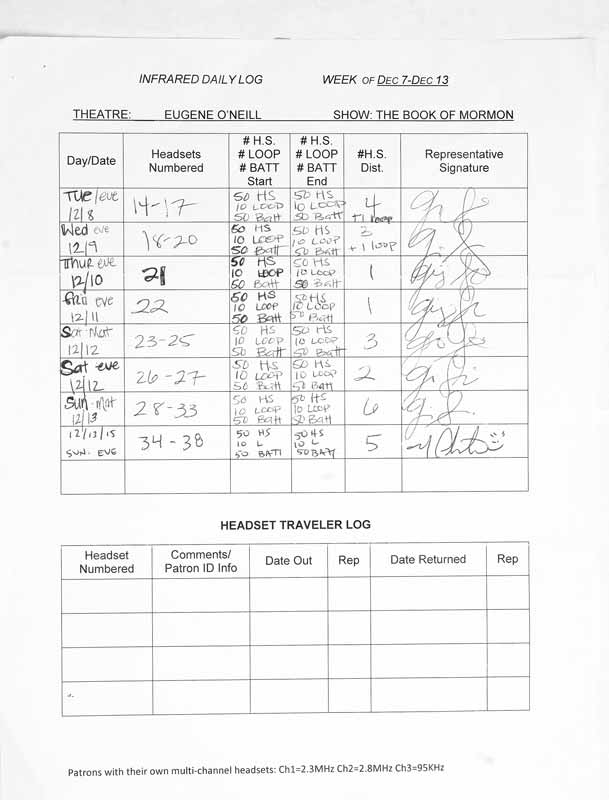 INFRARED DAILY LOG WEEK OF DEC 7-DEC 13
THEATRE: EUGENE O'NEILL SHOW: THE BOOK OF MORMON
Day/Date Headsets Numbered # H.S. # LOOP # BATT Start # H.S. # LOOP # BATT End #H.S. Dist. Representative Signature
Tue/eve 12/8 14-17 50 HS 10 LOOP 50 Batt 50 HS 10 LOOP 50 Batt 4 +1 loop
Wed eve 12/9 18-20 50 HS 10 LOOP 50 Batt 50 HS 10 LOOP 50 Batt 3 +1 loop
Thur eve 12/10 21 50 HS 10 LOOP 50 BATT 50 HS 10 LOOP 50 BATT 1
Fri eve 12/11 22 50 HS 10 LOOP 50 Batt 50 HS 10 LOOP 50 Batt 1
Sat Mat 12/12 23-25 50 HS 10 LOOP 50 Batt 50 HS 10 LOOP 50 Batt 3
Sat eve 12/12 26-27 50 HS 10 LOOP 50 Batt 50 HS 10 LOOP 50 Batt 2
Sun-mat 12/13 28-33 50 HS 10 LOOP 50 Batt 50 HS 10 LOOP 50 Batt 6
12/13/15 SUN. EVE 34-38 50 HS 10 L 50 BATT 50 HS 10 L 50 BATT 5
HEADSET TRAVELER LOG
Headset Numbered Comments/ Patron ID Info Date Out Rep Date Returned Rep
Patrons with their own multi-channel headsets: Ch1=2.3MHz Ch2=2.8MHz Ch3=95KHz